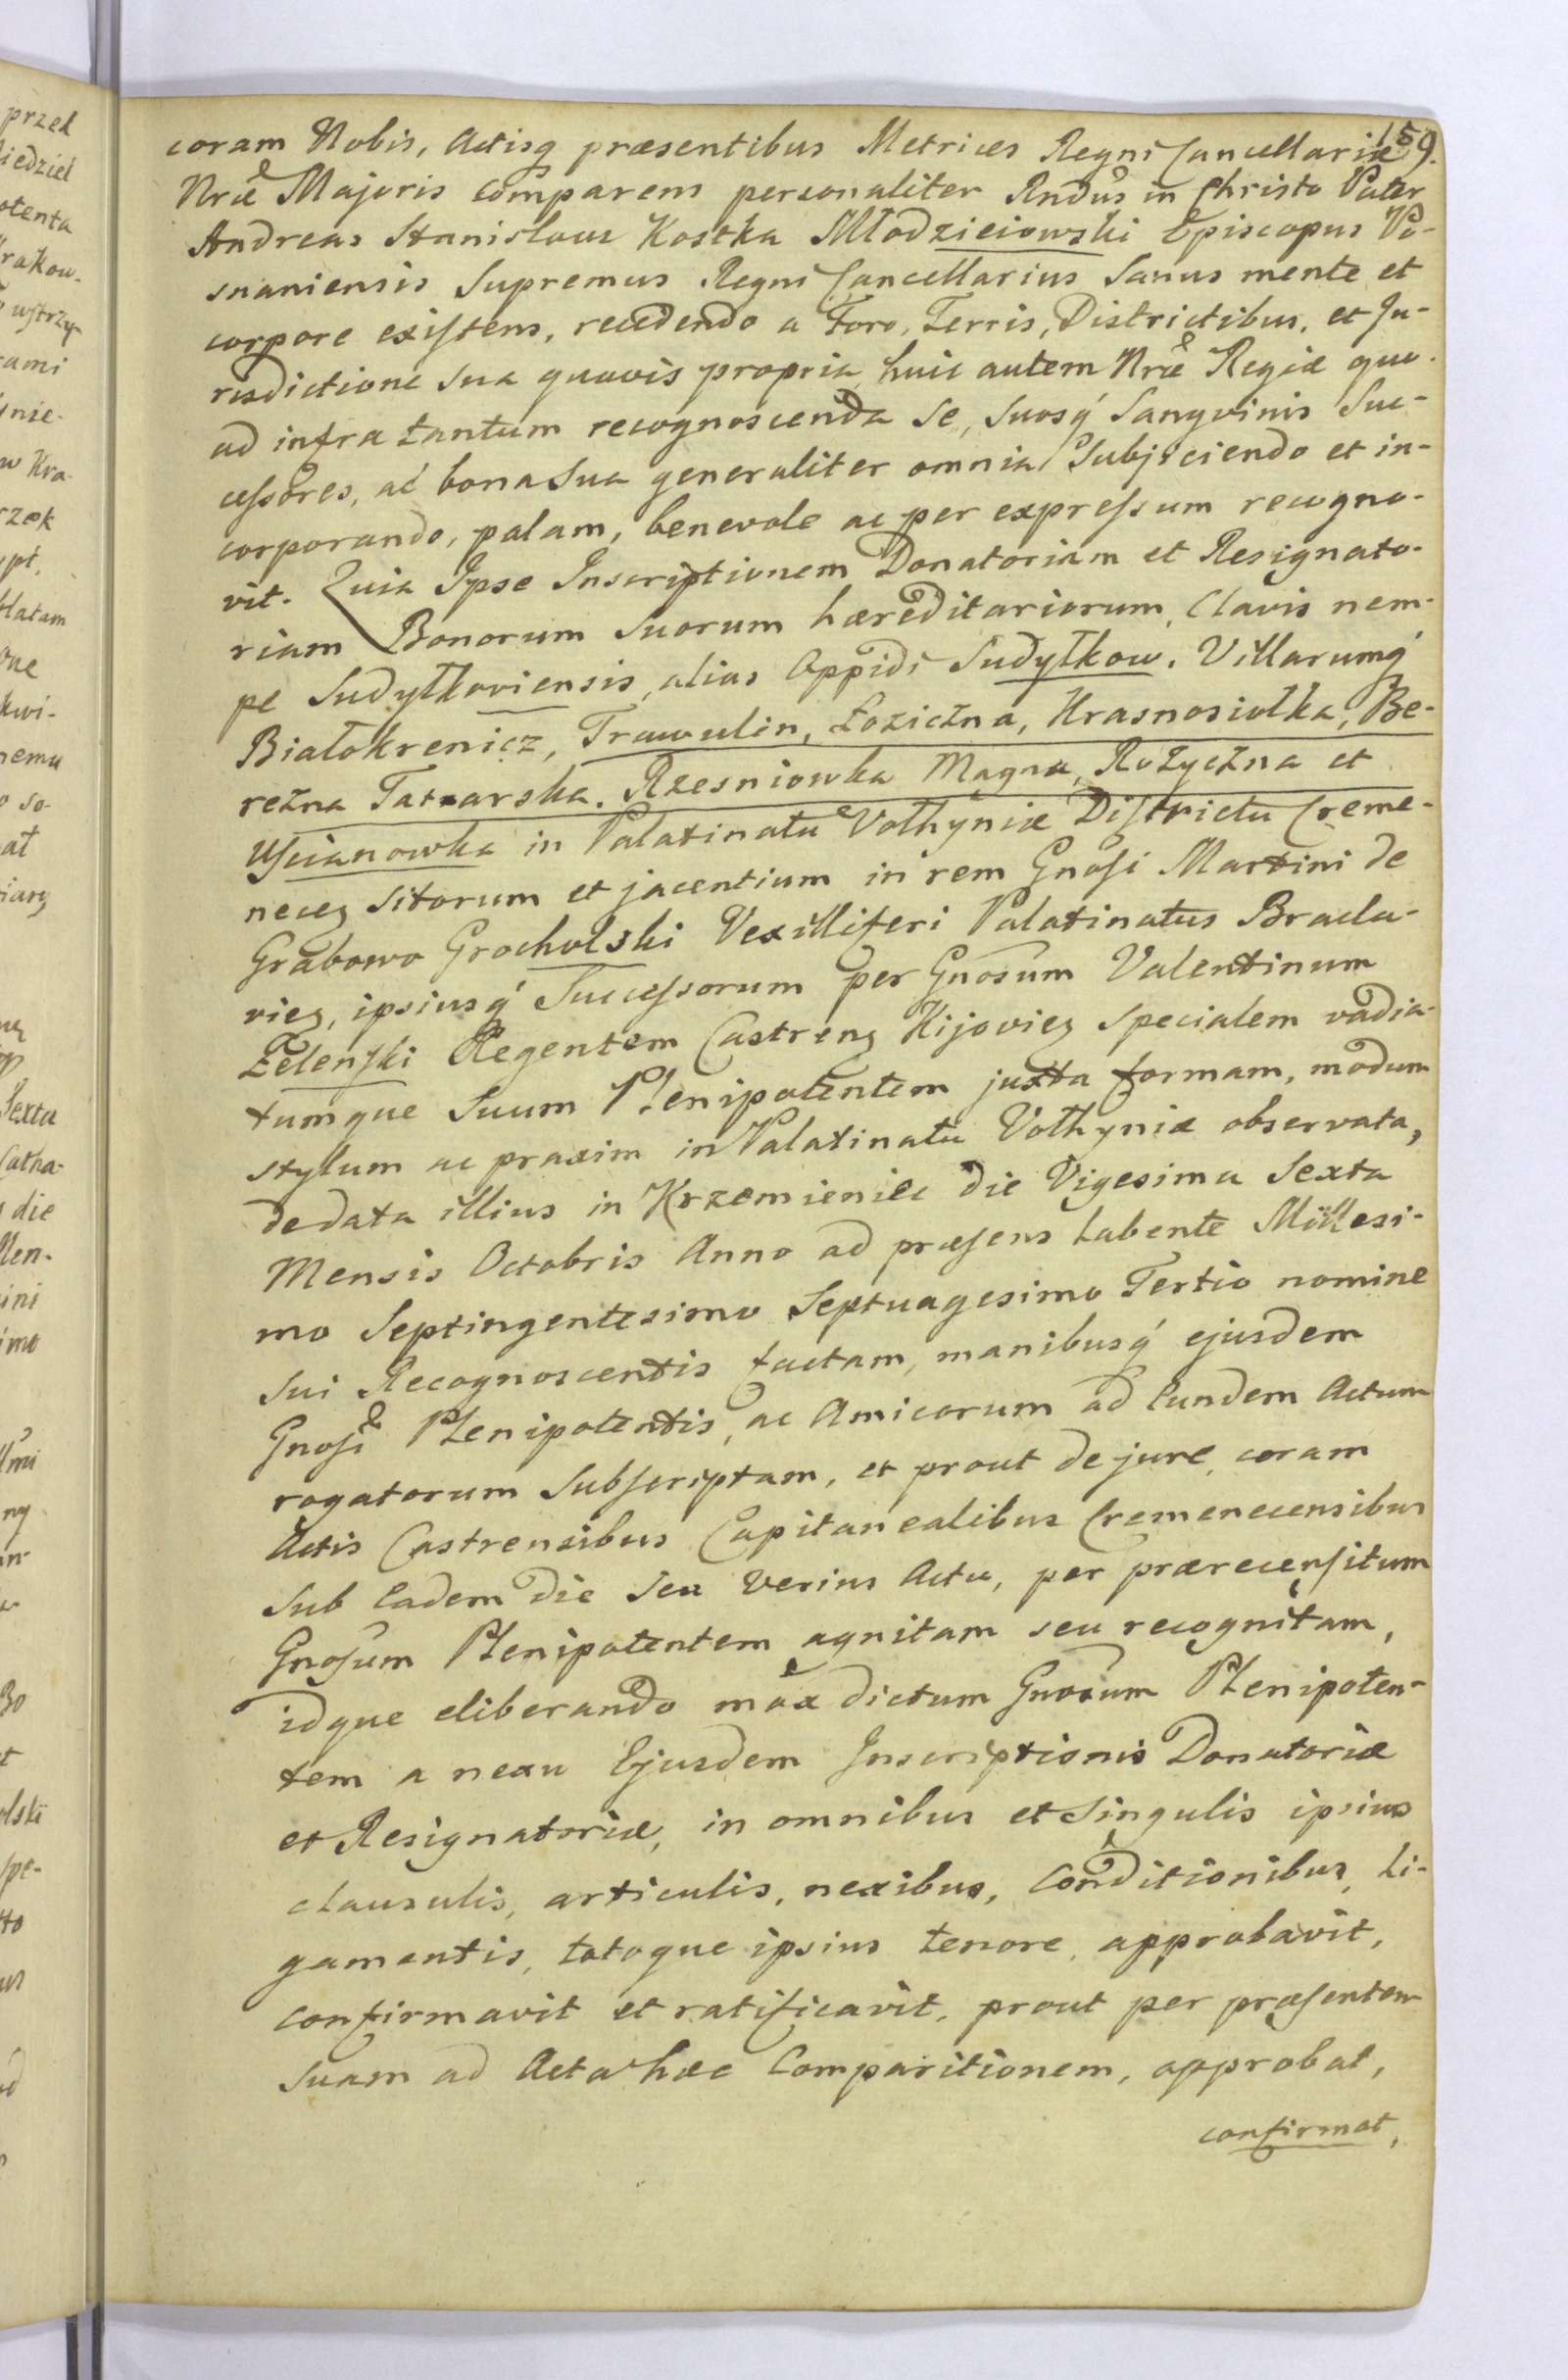 159.
coram Nobis, Actisq́ præsentibus Metrices Regni Cancellariæ
Nræ Majoris comparens personaliter Rndus in Christo Pater
Andreas Stanislaus Kostka Młodzieiowski Episcopus Po-
snaniensis Supremus Regni Cancellarius Sanus mente et
corpore existens, recedendo a Foro, Terris, Districtibus, et Ju-
risdictione sua quavis propria, huic autem Nræ Regiæ quo-
ad infra tantum recognoscenda se, suosq́ Sangvinis Suc-
cessores, ac bona sua generaliter omnia Subjiciendo et in-
corporando, palam, benevole ac per expressum recogno-
vit. Quia Ipse Inscriptionem Donatoriam et Resignato-
riam Bonorum suorum hæreditariorum, Clavis nem-
pe Sudyłkoviensis, alias Oppidi Sudyłkow. Villarumq́
Białokrenicz, Trawulin, Łoziczna, Krasnosiołka, Be-
rezna Tatarska, Rzesniowka Magna, Rożyczna et
Uscianowka in Palatinatu Volhyniæ Districtu Creme-
neceg sitorum et jacentium in rem Gnosi Martini de
Grabowo Grocholski Vexilliferi Palatinatus Bracla-
vieg, ipsiusq́ Successorum per Gnosum Valentinum
Zelenski Regentem Castreng Kijovieg specialem vadia-
tumque suum Plenipotentem juxta formam, modum
stylum ac praxim in Palatinatu Volhyniæ observata,
de data illius in Krzemieniec die Vigesima Sexta
Mensis Octobris Anno ad præsens labente Millesi-
mo Septingentesimo Septuagesimo Tertio nomine
sui Recognoscentis factam, manibusq́ ejusdem
Gnosi Plenipotentis, ac Amicorum ad Eundem Actum
rogatorum Subscriptam, et prout de jure, coram
Actis Castrensibus Capitanealibus Cremenecensibus
sub Eadem die seu verius Actu, per prærecensitum
Gnosum Plenipotentem agnitam seu recognitam,
idque eliberando mox dictum Gnosum Plenipoten-
tem a nexu Ejusdem Inscriptionis Donatoriæ
et Resignatoriæ, in omnibus et singulis ipsius
clausulis, articulis, nexibus, Conditionibus, li-
gamentis, totoque ipsius tenore, approbavit,
confirmavit et ratificavit, prout per præsentem
suam ad Acta hæc Comparitionem, approbat,
confirmat,